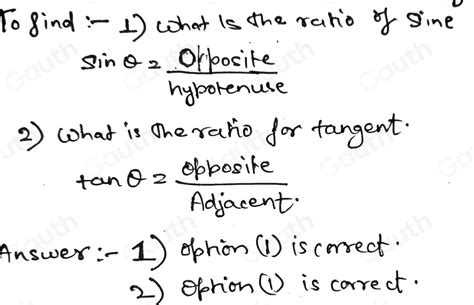 To find :- 1) What is the ratio of sine
sin θ = Opposite
hypotenuse
2) What is the ratio for tangent.
tan θ = opposite
Adjacent.
Answer :- 1) option (1) is correct.
2) option (1) is correct.
Gauth